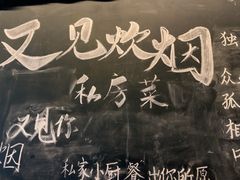 又见炊烟
私房菜
又见你
烟
私家小厨 餐出你所愿
独
众
孤
相